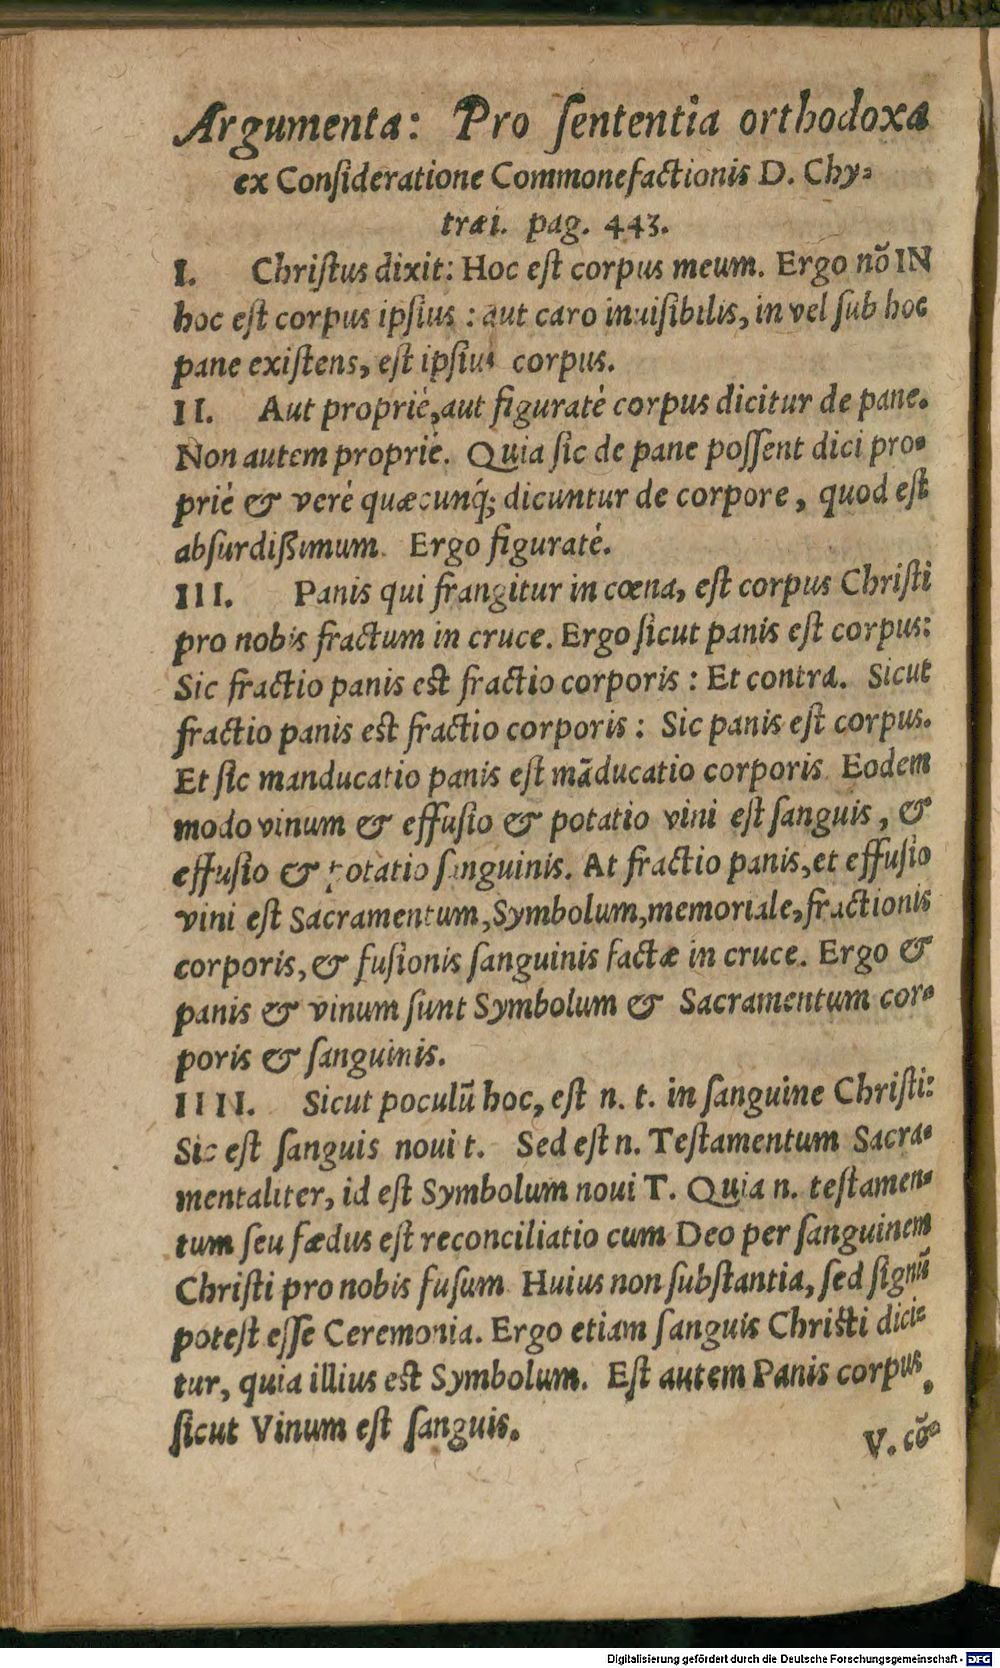 Argumenta: Pro ſententia orthodoxa
ex Conſideratione Commonefactionis D. Chy-
træi. pag. 443.
I. Chriſtus dixit: Hoc eſt corpus meum. Ergo nõ IN
hoc eſt corpus ipſius : aut caro inuiſibilis, in vel ſub hoc
pane exiſtens, eſt ipſius corpus.
II. Aut propriè, aut figuratè corpus dicitur de pane.
Non autem propriè. Quia ſic de pane poſſent dici pro-
priè & verè quæcunq́; dicuntur de corpore, quod eſt
abſurdißimum. Ergo figuratè.
III. Panis qui frangitur in cœna, eſt corpus Chriſti
pro nobis fractum in cruce. Ergo ſicut panis eſt corpus:
Sic fractio panis eſt fractio corporis : Et contra. Sicut
fractio panis eſt fractio corporis : Sic panis eſt corpus.
Et ſic manducatio panis eſt mãducatio corporis. Eodem
modo vinum & effuſio & potatio vini eſt ſanguis, &
effuſio & potatio ſanguinis. At fractio panis, et effuſio
vini eſt Sacramentum, Symbolum, memoriale, fractionis
corporis, & fuſionis ſanguinis factæ in cruce. Ergo &
panis & vinum ſunt Symbolum & Sacramentum cor-
poris & ſanguinis.
IIII. Sicut poculũ hoc, eſt n. t. in ſanguine Chriſti:
Sic eſt ſanguis noui t. Sed eſt n. Teſtamentum Sacra-
mentaliter, id eſt Symbolum noui T. Quia n. teſtamen-
tum ſeu fædus eſt reconciliatio cum Deo per ſanguinem
Chriſti pro nobis fuſum. Huius non ſubſtantia, ſed ſignũ
poteſt eſſe Ceremonia. Ergo etiam ſanguis Chriſti dici-
tur, quia illius eſt Symbolum. Eſt autem Panis corpus,
ſicut Vinum eſt ſanguis.
V. cõ-
Digitalisierung gefördert durch die Deutsche Forschungsgemeinschaft - DFG